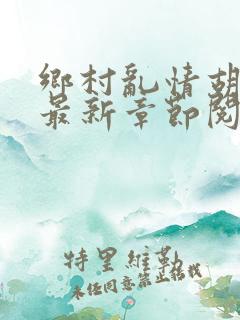 鄉村亂情胡
最新章節閱
特里維勒
未经同意禁止转载